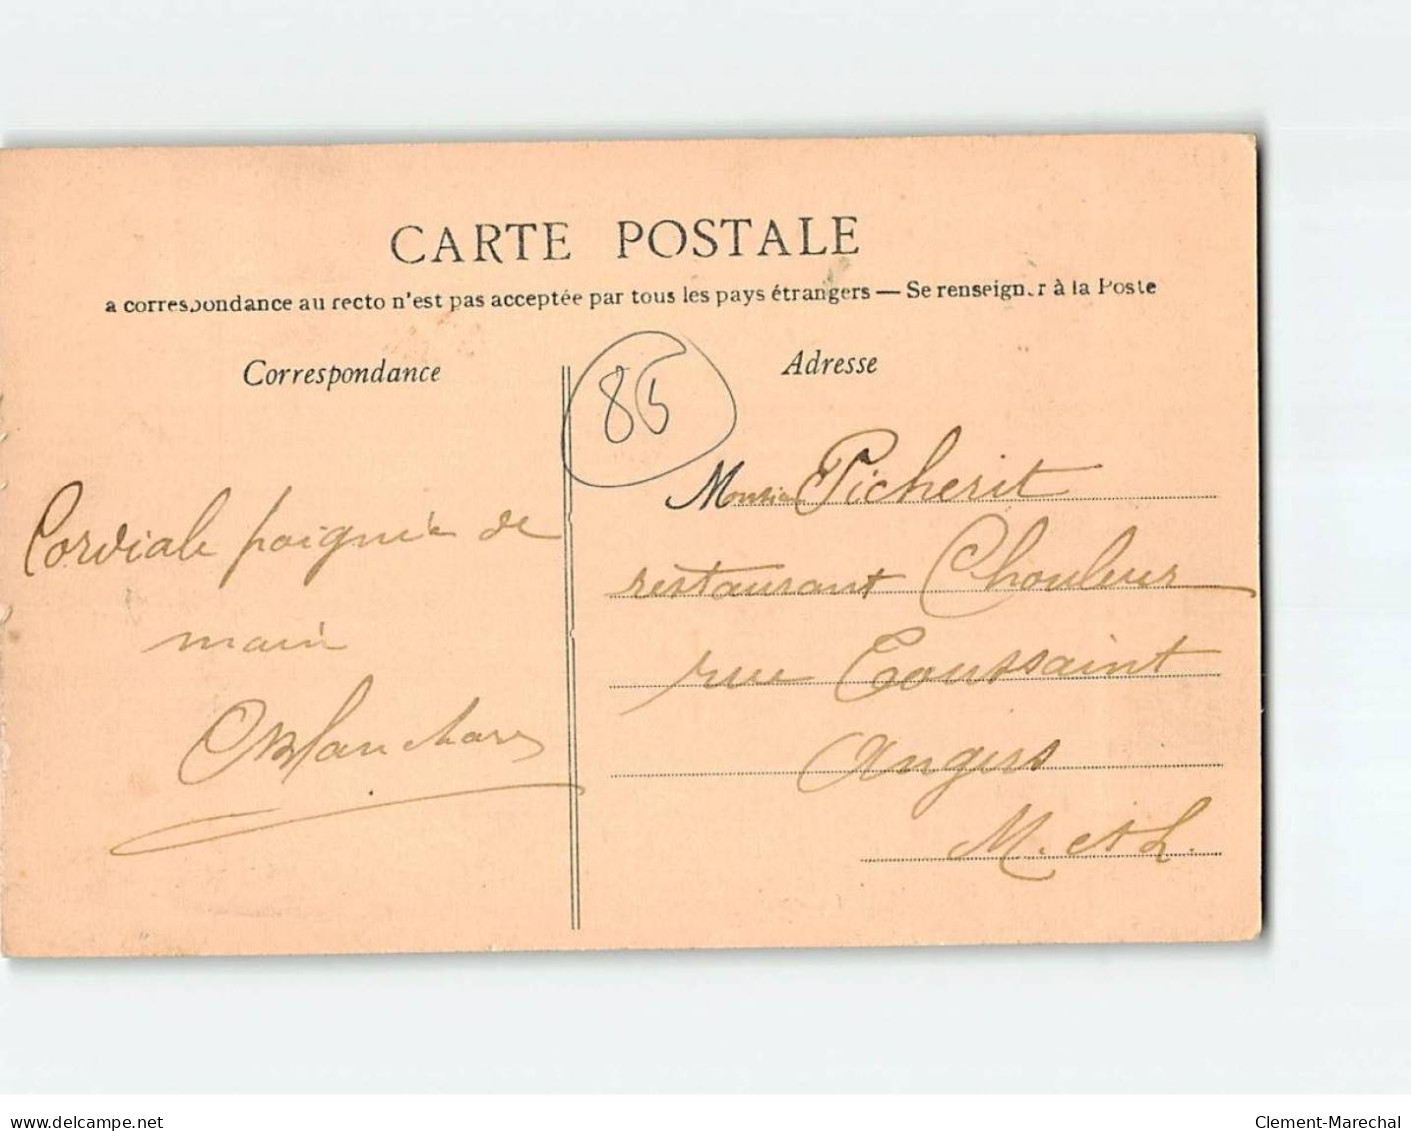 CARTE POSTALE
a correspondance au recto n'est pas acceptée par tous les pays étrangers — Se renseigner à la Poste
Correspondance
Adresse
85
Cordiale poignée de
main
Monsieur Picherit
restaurant
rue Toussaint
Angers
M. et L.
www.delcampe.net
Clement-Marechal